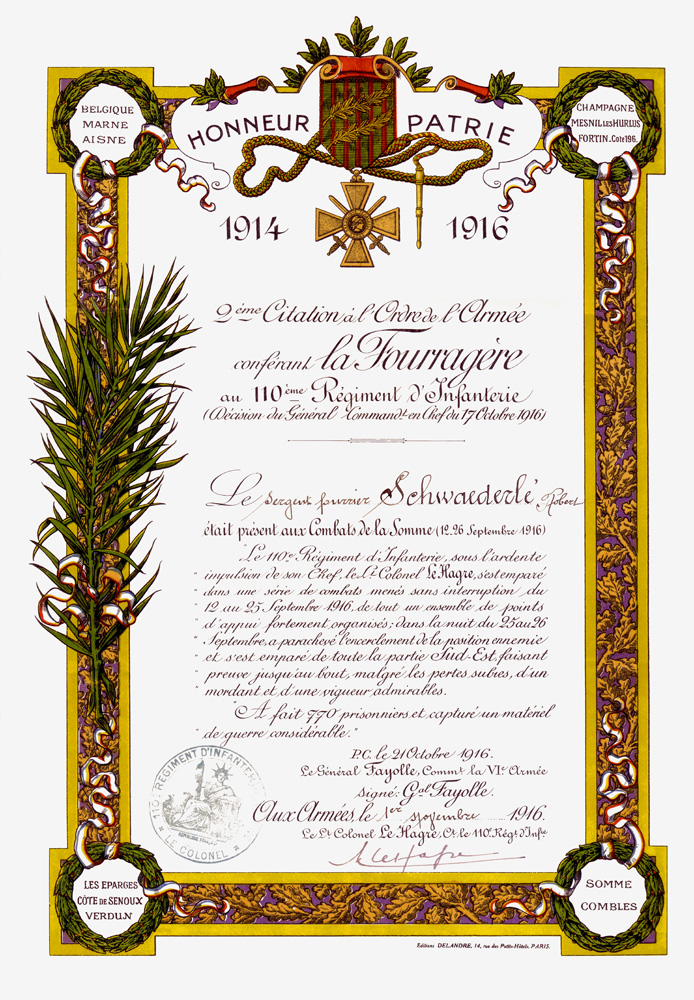 BELGIQUE
MARNE
AISNE
HONNEUR PATRIE
CHAMPAGNE
MESNIL LES HURLUS
FORTIN. Cote 196.
1914 1916
2ème Citation à l'Ordre de l'Armée
conférant la Fourragère
au 110ème Régiment d'Infanterie
(Décision du Général Commandt en Chef du 17 Octobre 1916)
Le Sergent fourrier Schwaederlé Robert
était présent aux Combats de la Somme (12.26 Septembre 1916)
"Le 110e Régiment d'Infanterie, sous l'ardente
" impulsion de son Chef, le Lt Colonel Le Hagre, s'est emparé
" dans une série de combats menés sans interruption du
" 12 au 25 Septembre 1916, de tout un ensemble de points
" d'appui fortement organisés; dans la nuit du 25 au 26
" Septembre, a parachevé l'encerclement de la position ennemie
" et s'est emparé de toute la partie Sud-Est, faisant
" preuve jusqu'au bout, malgré les pertes subies, d'un
" mordant et d'une vigueur admirables.
"A fait 770 prisonniers et capturé un matériel
" de guerre considérable."
P.C. le 21 Octobre 1916.
Le Général Fayolle, Commt la VIe Armée
signé: Gal Fayolle.
Aux Armées, le 1er Novembre 1916.
Le Lt Colonel Le Hagre, Ct. le 110e Régt d'Infie
110e REGIMENT D'INFANTERIE
LE COLONEL
LES EPARGES
CÔTE DE SENOUX
VERDUN
SOMME
COMBLES
Editions DELANDRE, 14, rue des Petits-Hôtels, PARIS.